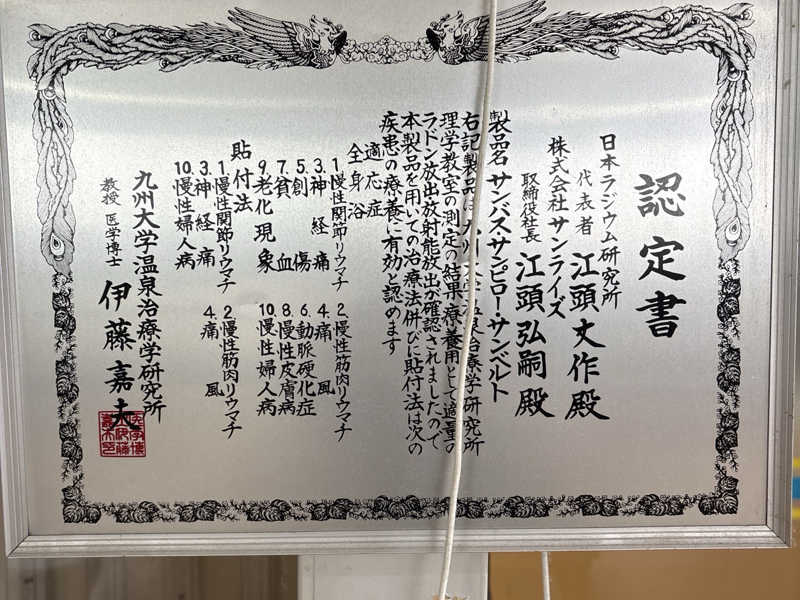 認定書
日本ラジウム研究所
代表者 江頭文作殿
株式会社 サンライズ
取締役社長 江頭弘嗣殿
製品名 サンバス・サンピロー・サンベルト
右記製品は九州大学温泉治療学研究所
理学教室の測定の結果、療養用として適量の
ラドン放出放射能放出が確認されましたので
本製品を用いての治療法併びに貼付法は次の
疾患の療養に有効と認めます
適応症
全身浴
1.慢性関節リウマチ 2.慢性筋肉リウマチ
3.神経痛 4.痛風
5.創傷 6.動脈硬化症
7.貧血 8.慢性皮膚病
9.老化現象 10.慢性婦人病
貼付法
1.慢性関節リウマチ 2.慢性筋肉リウマチ
3.神経痛 4.痛風
10.慢性婦人病
九州大学温泉治療学研究所
教授 医学博士 伊藤嘉夫